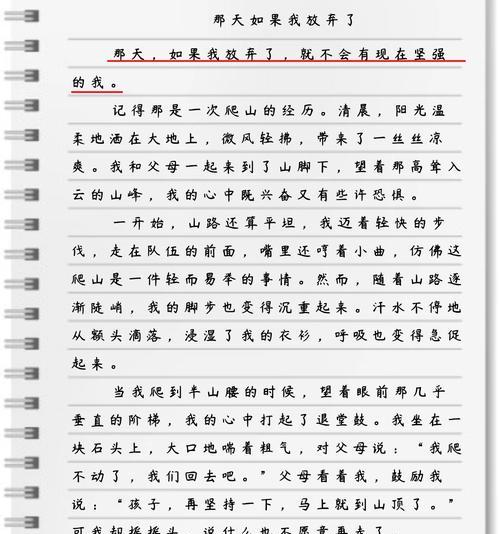 那天如果我放弃了
那天，如果我放弃了，就不会有现在坚强
的我。
记得那是一次爬山的经历。清晨，阳光温
柔地洒在大地上，微风轻拂，带来了一丝丝凉
爽。我和父母一起来到了山脚下，望着那高耸入
云的山峰，我的心中既兴奋又有些许恐惧。
一开始，山路还算平坦，我迈着轻快的步
伐，走在队伍的前面，嘴里还哼着小曲，仿佛这
爬山是一件轻而易举的事情。然而，随着山路逐
渐陡峭，我的脚步也变得沉重起来。汗水不停地
从额头滴落，浸湿了我的衣衫，呼吸也变得急促
起来。
当我爬到半山腰的时候，望着眼前那几乎
垂直的阶梯，我的心中打起了退堂鼓。我坐在一
块石头上，大口地喘着粗气，对父母说：“我爬
不动了，我们回去吧。”父母看着我，鼓励我
说：“孩子，再坚持一下，马上就到山顶了。”
可我却摇摇头，说什么也不愿意再走了。